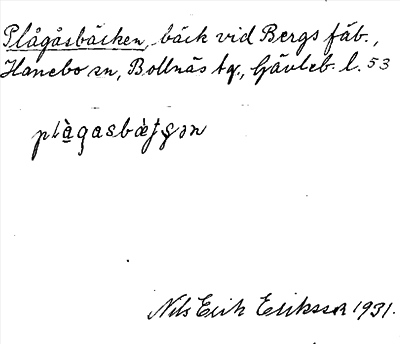 Plågåsbäcken, bäck vid Bergs fäb.,
Hanebo sn, Bollnäs tg, Gävleb. l. 53
Nils Erik Eriksson 1931.